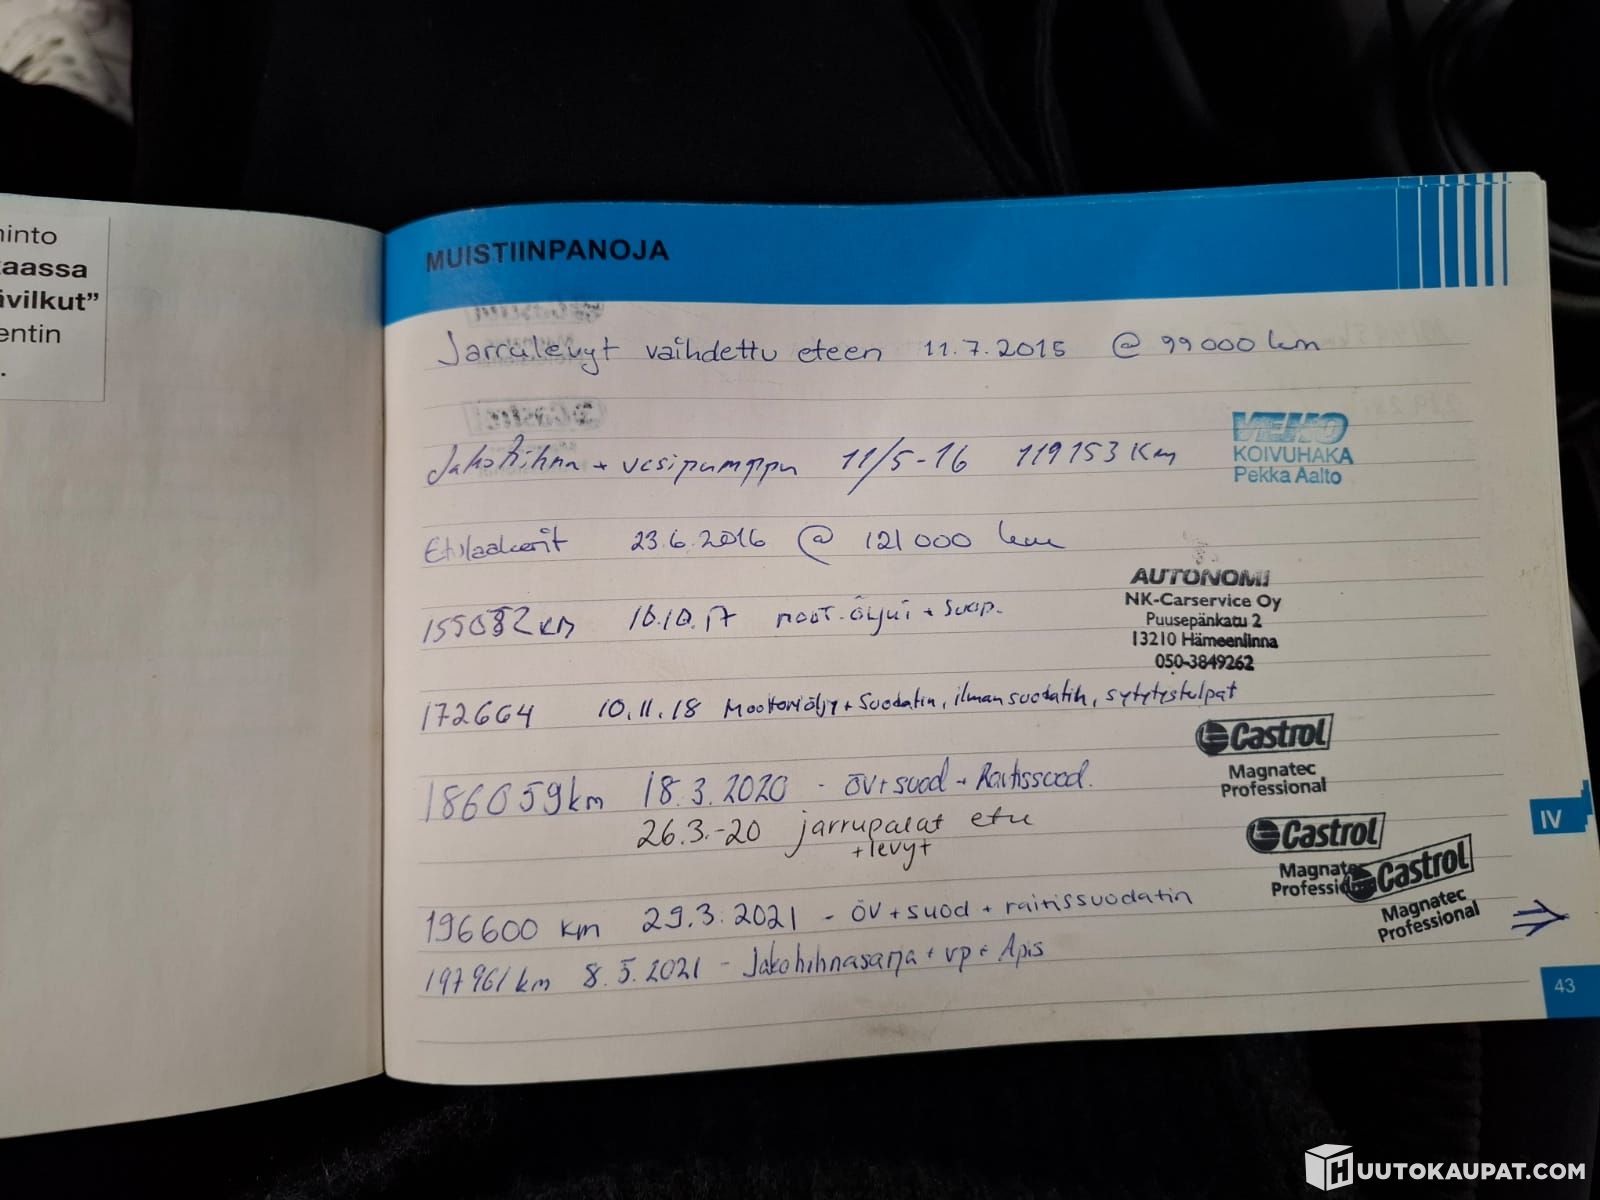 into
aassa
vilkut”
entin
.
MUISTIINPANOJA
Jarrulevyt vaihdettu eteen 11.7.2015 @ 99000 km
Jakohihna + vesipumppu 11/5-16 119153 Km
VEHO
KOIVUHAKA
Pekka Aalto
Etulaakerit 23.6.2016 @ 121000 km
AUTONOMI
NK-Carservice Oy
Puusepänkatu 2
13210 Hämeenlinna
050-3849262
155082 KM 10.10.17 moot.öljyt + suop.
172664 10.11.18 Moottoriöljy + Suodatin, ilmansuodatin, sytytystulpat
Castrol
Magnatec
Professional
186059km 18.3.2020 - ÖV + suod + Raitissuod.
26.3.-20 jarrupalat etu
+ levyt
Castrol
Magnatec
Professional
Castrol
Magnatec
Professional
IV
196600 km 29.3.2021 - ÖV + suod + raitissuodatin
197961km 8.5.2021 - Jakohihnasarja + vp + Apis
43
HUUTOKAUPAT.COM